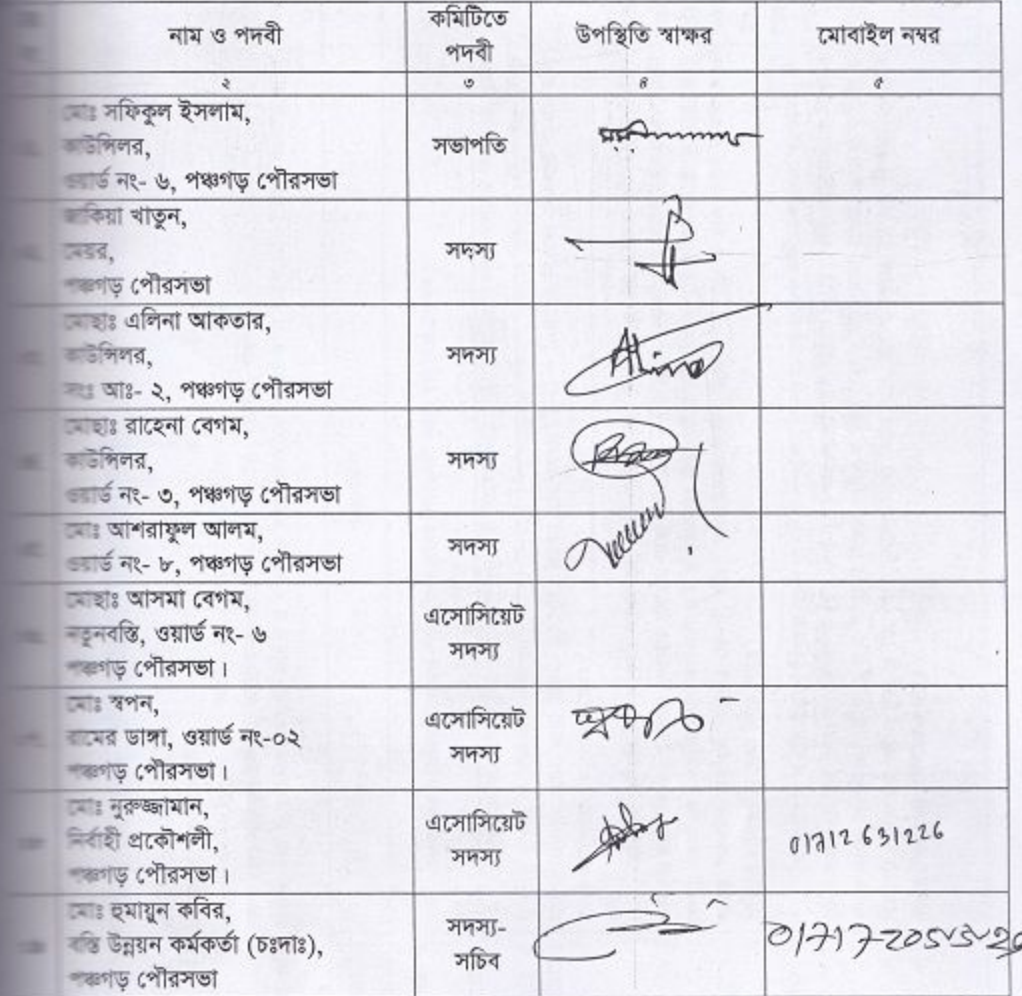 নাম ও পদবী
কমিটিতে
পদবী
উপস্থিতি স্বাক্ষর
মোবাইল নম্বর
২
৩
৪
৫
মোঃ সফিকুল ইসলাম,
কাউন্সিলর,
ওয়ার্ড নং- ৬, পঞ্চগড় পৌরসভা
সভাপতি
জাকিয়া খাতুন,
মেয়র,
পঞ্চগড় পৌরসভা
সদস্য
মোছাঃ এলিনা আকতার,
কাউন্সিলর,
সংঃ আঃ- ২, পঞ্চগড় পৌরসভা
সদস্য
Alina
মোছাঃ রাহেনা বেগম,
কাউন্সিলর,
ওয়ার্ড নং- ৩, পঞ্চগড় পৌরসভা
সদস্য
মোঃ আশরাফুল আলম,
ওয়ার্ড নং- ৮, পঞ্চগড় পৌরসভা
সদস্য
মোছাঃ আসমা বেগম,
নতুনবস্তি, ওয়ার্ড নং- ৬
পঞ্চগড় পৌরসভা।
এসোসিয়েট
সদস্য
মোঃ স্বপন,
রামের ডাঙ্গা, ওয়ার্ড নং-০২
পঞ্চগড় পৌরসভা।
এসোসিয়েট
সদস্য
মোঃ নুরুজ্জামান,
নির্বাহী প্রকৌশলী,
পঞ্চগড় পৌরসভা।
এসোসিয়েট
সদস্য
01712631226
মোঃ হুমায়ুন কবির,
বস্তি উন্নয়ন কর্মকর্তা (চঃদাঃ),
পঞ্চগড় পৌরসভা
সদস্য-
সচিব